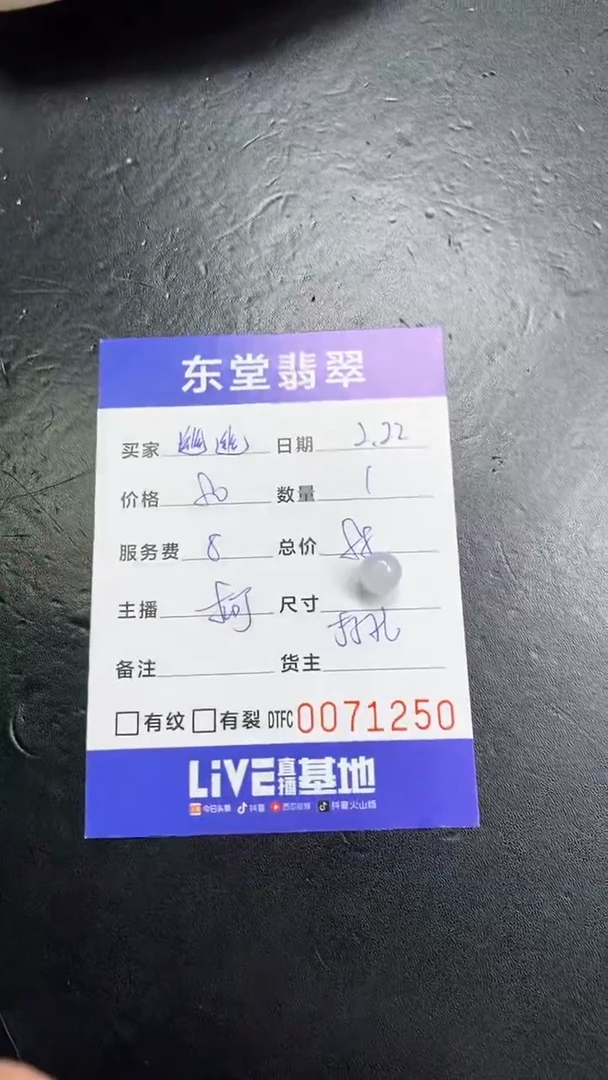 东堂翡翠
买家 日期 2.22
价格 80 数量 1
服务费 8 总价 88
主播 尺寸
打孔
备注 货主
有纹 有裂 DTFC 0071250
LiVE直播基地
今日头条 抖音 西瓜视频 抖音火山版